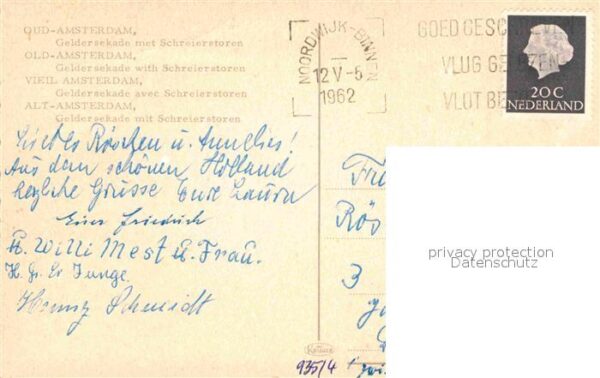 OUD-AMSTERDAM,
Geldersekade met Schreierstoren
OLD-AMSTERDAM,
Geldersekade with Schreierstoren
VIEIL AMSTERDAM,
Geldersekade avec Schreierstoren
ALT-AMSTERDAM,
Geldersekade mit Schreierstoren
NOORDWIJK-BINNEN
12 V -5
1962
GOED GESCHREVEN
VLUG GELEZEN
VLOT BE
20 C
NEDERLAND
Liebes Röschen u. Annelies!
Aus dem schönen Holland
herzliche Grüsse Eure Laura
Euer Friedrich
H. Willi Mest u. Frau.
H. Gr. Junge
Schmidt
Fr
Rös
3
privacy protection
Datenschutz
935/4